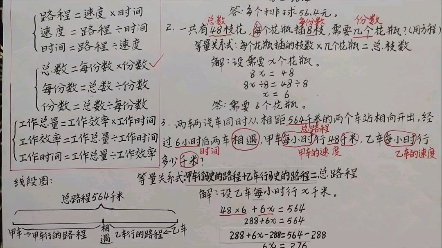 路程=速度×时间
速度=路程÷时间
时间=路程÷速度
总数=每份数×份数
每份数=总数÷份数
份数=总数÷每份数
工作总量=工作效率×工作时间
工作效率=工作总量÷工作时间
工作时间=工作总量÷工作效率
线段图:
总路程564千米
甲车 甲车行的路程 相遇 乙车行的路程 乙车
564元。
总数 每份数 份数
2.一共有48枝花,每个花瓶插8枝,需要几个花瓶?(用方程)
等量关系式:每个花瓶插的枝数×几个花瓶=总枝数
解:设需要x个花瓶。
8x=48
8x÷8=48÷8
x=6
答:需要6个花瓶。
3.两辆汽车同时从相距564千米的两个车站相向开出,经
总路程
过6小时后两车相遇,甲车每小时行48千米,乙车每小时行
时间 甲车的速度 乙车的速度
多少千米?
等量关系式:甲车行驶的路程+乙车行驶的路程=总路程
解:设乙车每小时行x千米。
48×6+6x=564
288+6x=564
288+6x-288=564-288
6x=276